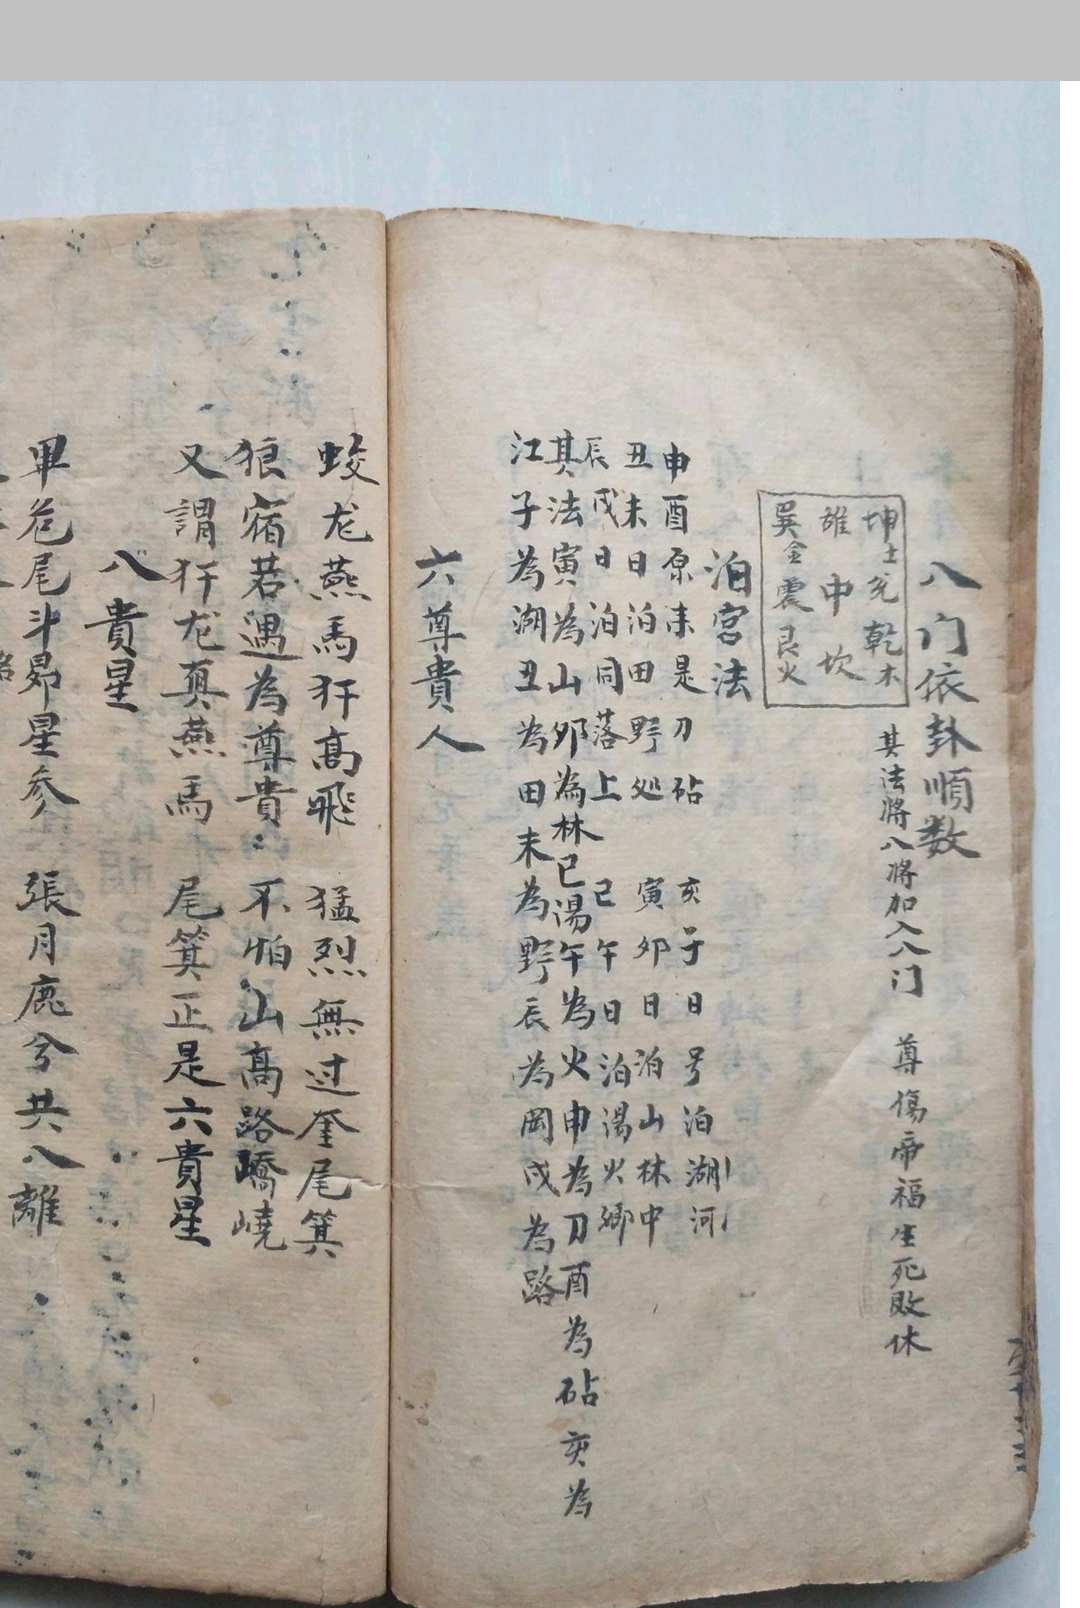 八门依卦順数
其法將八將加入八门 尊傷帝福生死敗休
坤土兌乾木
離中坎
巽金震艮火
泊宮法
申酉原来是刀砧 亥子日号泊湖河
丑未日泊田野処 寅夘日泊山林中
辰戌日泊同落上 己午日泊湯火鄉
其法寅為山夘為林已湯午為火申為刀酉為砧亥為
江子為湖丑為田未為野辰為岡戌為路
六尊貴人
蛟龙燕馬犴高飛 猛烈無过奎尾箕
狼宿若遇為尊貴 不怕山高路嶠嶢
又謂犴龙真燕馬 尾箕正是六貴星
八貴星
畢危尾斗昴星參 張月鹿兮共八離